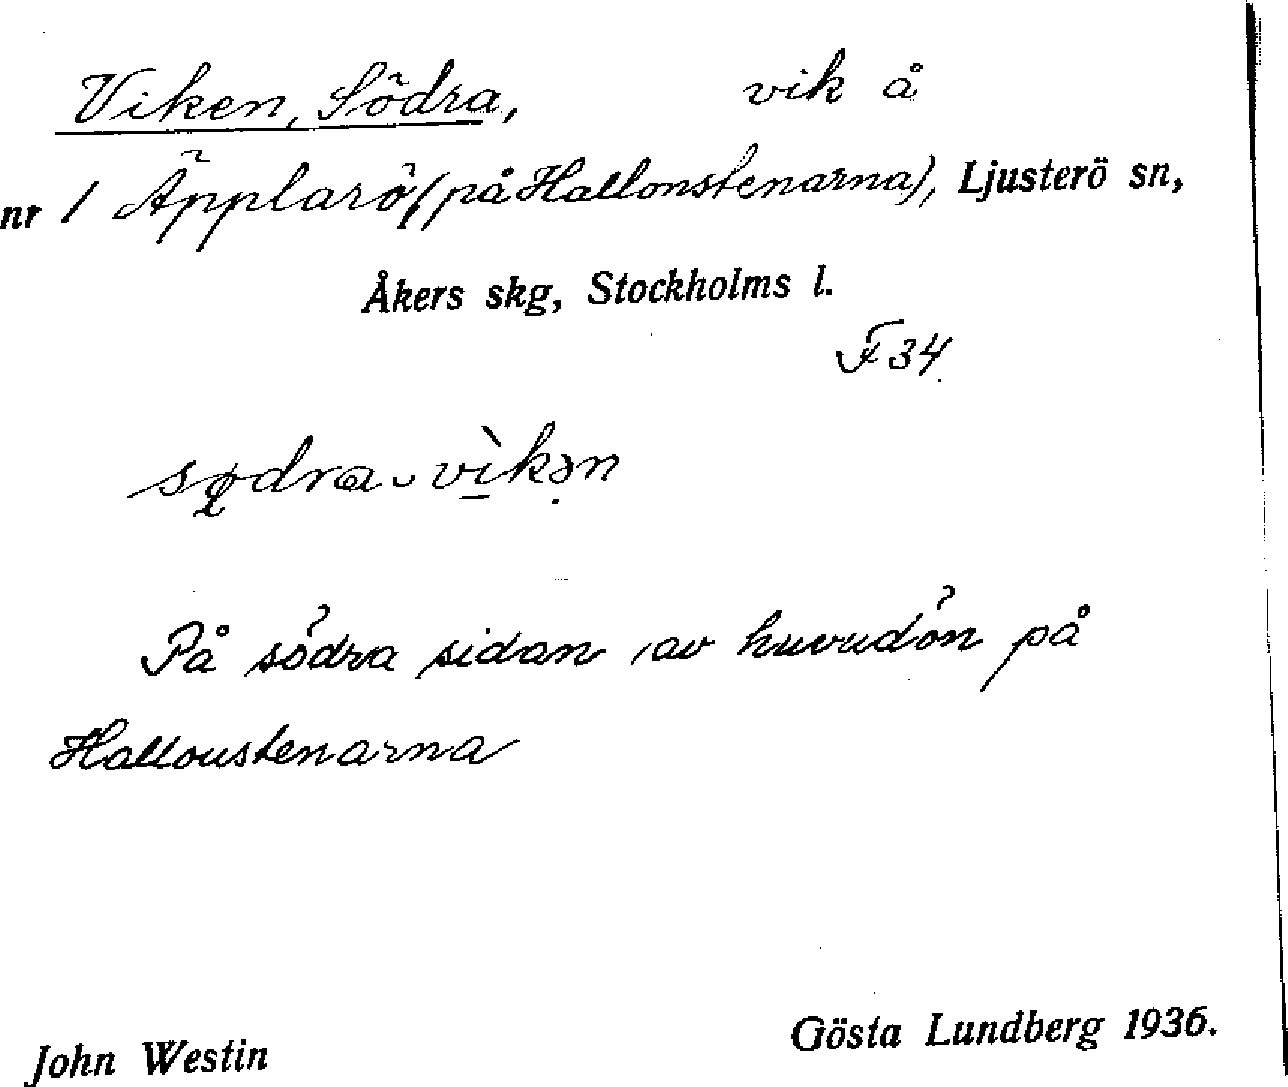 Viken, Södra, vik å
nr 1 Äpplarö (på Hallonstenarna), Ljusterö sn,
Åkers skg, Stockholms l.
F 34
södra vìkən
På södra sidan av huvudön på
Hallonstenarna
John Westin Gösta Lundberg 1936.